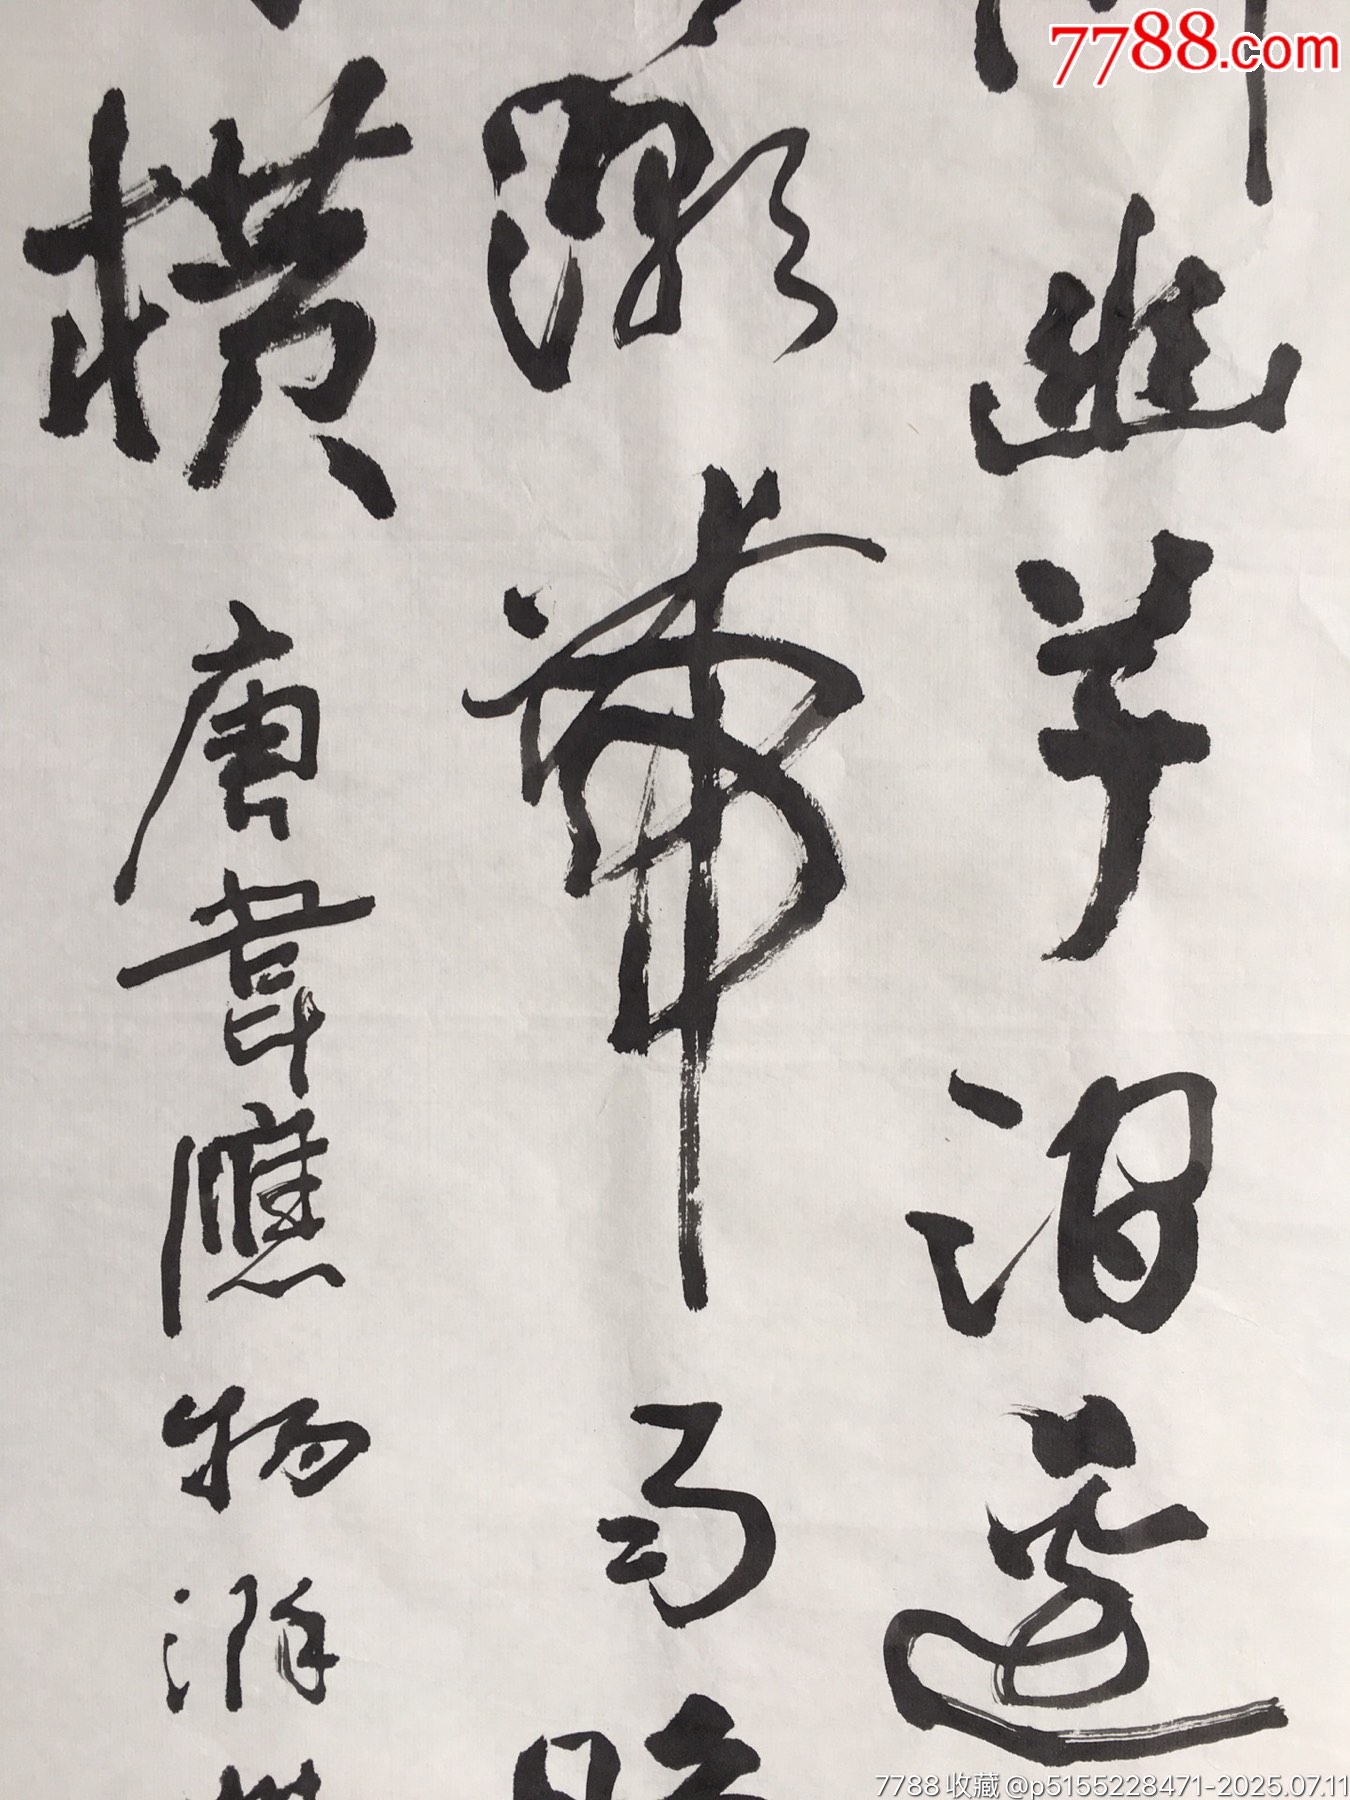 7788.com
幽草澗邊
潮帶雨晚
橫
唐韋應物滁
7788收藏@p5155228471-2025.07.11